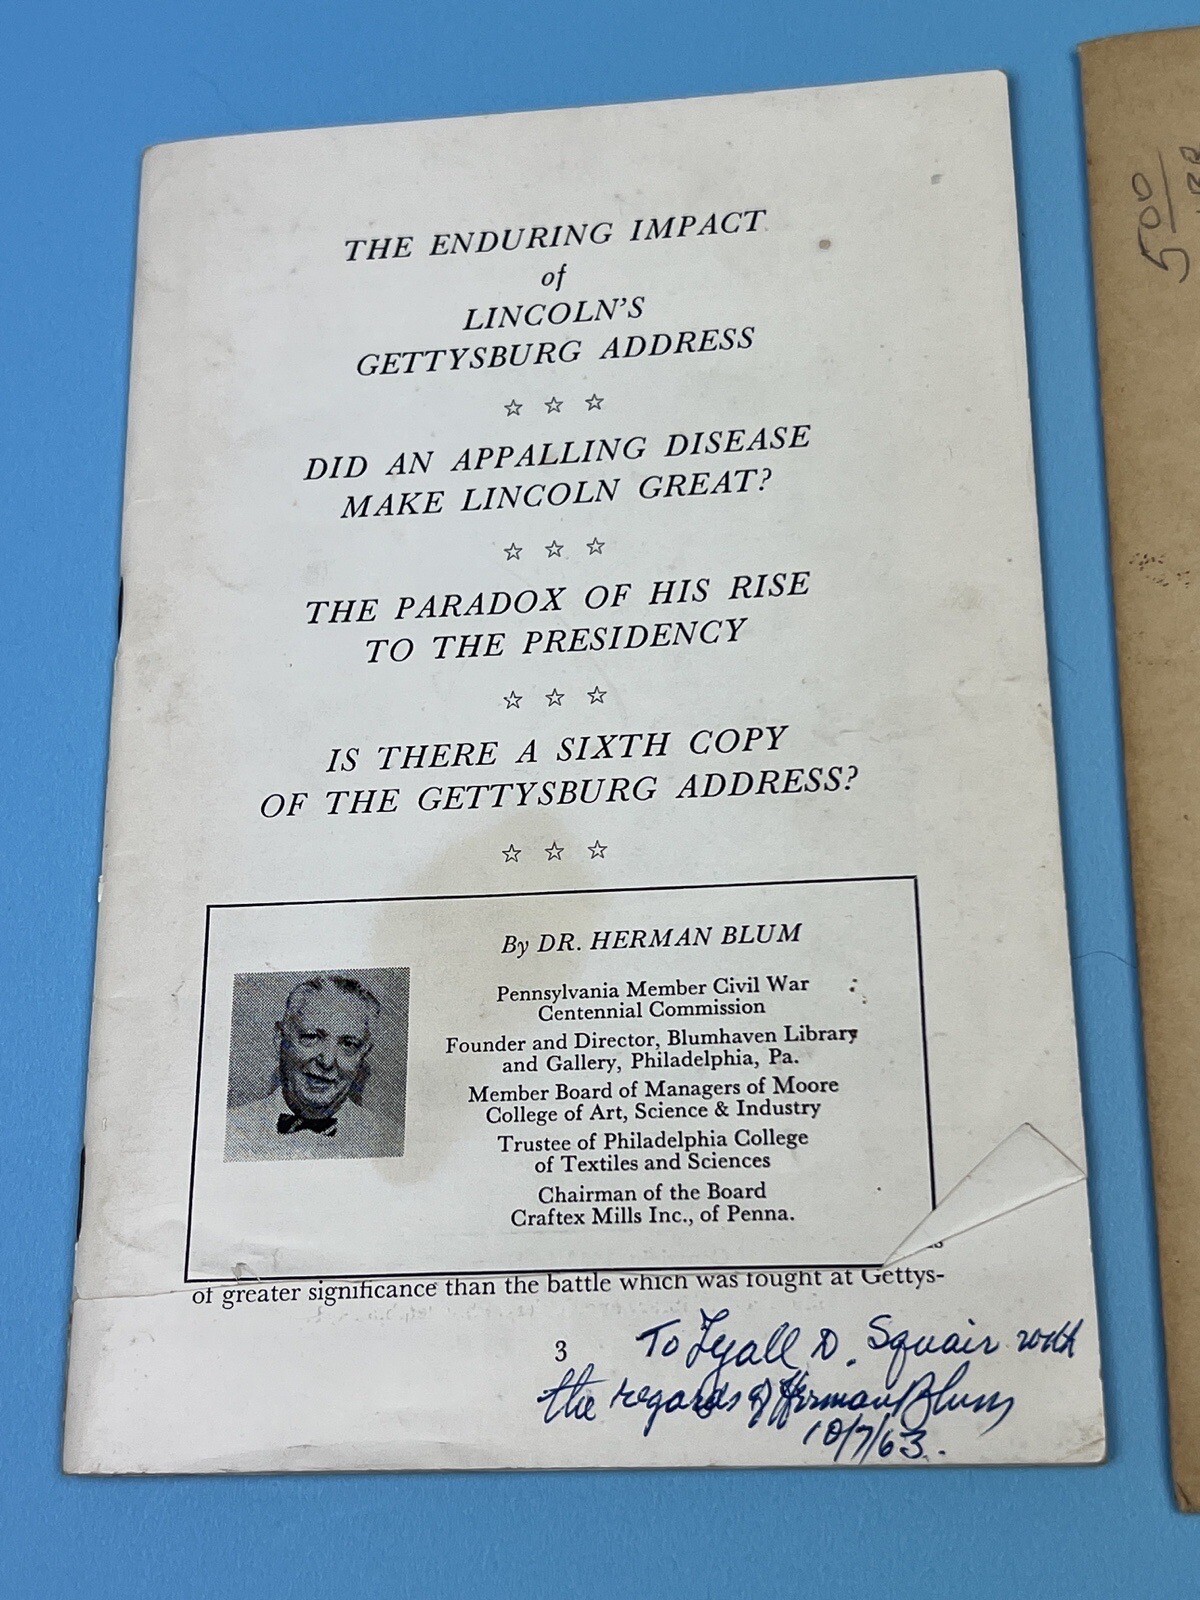 THE ENDURING IMPACT
of
LINCOLN'S
GETTYSBURG ADDRESS
☆ ☆ ☆
DID AN APPALLING DISEASE
MAKE LINCOLN GREAT?
☆ ☆ ☆
THE PARADOX OF HIS RISE
TO THE PRESIDENCY
☆ ☆ ☆
IS THERE A SIXTH COPY
OF THE GETTYSBURG ADDRESS?
☆ ☆ ☆
By DR. HERMAN BLUM
Pennsylvania Member Civil War
Centennial Commission
Founder and Director, Blumhaven Library
and Gallery, Philadelphia, Pa.
Member Board of Managers of Moore
College of Art, Science & Industry
Trustee of Philadelphia College
of Textiles and Sciences
Chairman of the Board
Craftex Mills Inc., of Penna.
of greater significance than the battle which was fought at Gettys-
3
To Lyall D. Squair with
the regards of Herman Blum
10/7/63.
500